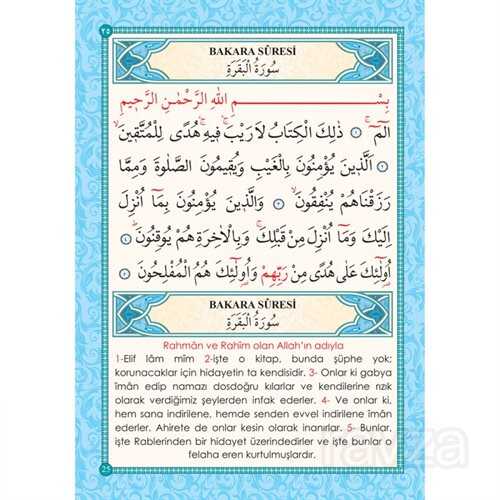 ٢٥
BAKARA SÛRESİ
سُورَةُ الْبَقَرَةِ
بِسْمِ اللّٰهِ الرَّحْمٰنِ الرَّحٖيمِ
الٓمٓ ۚ ﴿١﴾ ذٰلِكَ الْكِتَابُ لَا رَيْبَ ۚۛ فٖيهِ ۚۛ هُدًى لِلْمُتَّقٖينَۙ
﴿٢﴾ اَلَّذٖينَ يُؤْمِنُونَ بِالْغَيْبِ وَيُقٖيمُونَ الصَّلٰوةَ وَمِمَّا
رَزَقْنَاهُمْ يُنْفِقُونَۙ ﴿٣﴾ وَالَّذٖينَ يُؤْمِنُونَ بِمَٓا اُنْزِلَ
اِلَيْكَ وَمَٓا اُنْزِلَ مِنْ قَبْلِكَۚ وَبِالْاٰخِرَةِ هُمْ يُوقِنُونَۜ ﴿٤﴾
اُو۬لٰٓئِكَ عَلٰى هُدًى مِنْ رَبِّهِمْ وَاُو۬لٰٓئِكَ هُمُ الْمُفْلِحُونَ ﴿٥﴾
BAKARA SÛRESİ
سُورَةُ الْبَقَرَةِ
Rahmân ve Rahîm olan Allah'ın adıyla
1-Elif lâm mîm 2-işte o kitap, bunda şüphe yok;
korunacaklar için hidayetin ta kendisidir. 3- Onlar ki gabya
îmân edip namazı dosdoğru kılarlar ve kendilerine rızık
olarak verdiğimiz şeylerden infak ederler. 4- Ve onlar ki,
hem sana indirilene, hemde senden evvel indirilene îmân
ederler. Ahirete de onlar kesin olarak inanırlar. 5- Bunlar,
işte Rablerinden bir hidayet üzerindedirler ve işte bunlar o
felaha eren kurtulmuşlardır.
25
ravza